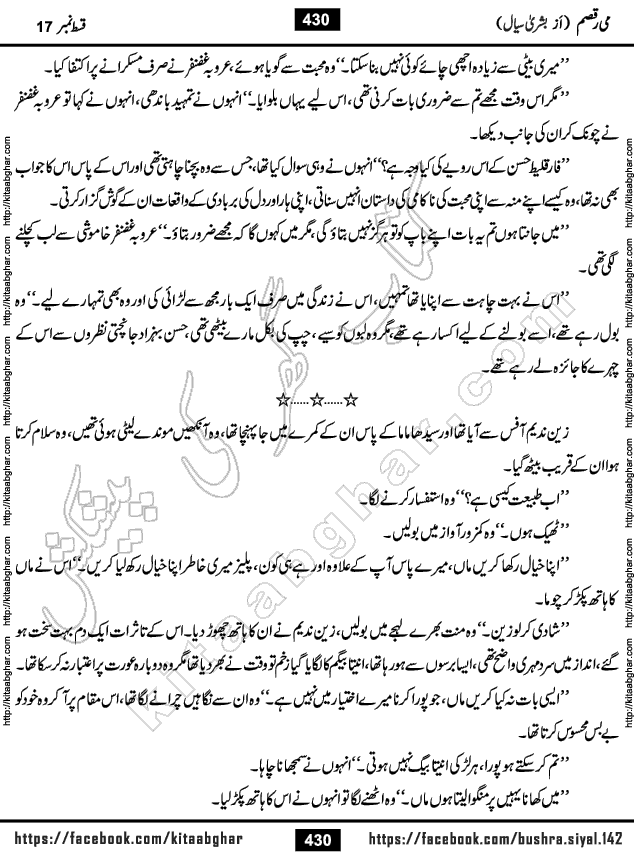 می رقصم (از بشریٰ سیال) 430 قسط نمبر 17
’’میری بیٹی سے زیادہ اچھی چائے کوئی نہیں بنا سکتا۔‘‘ وہ محبت سے گویا ہوئے، عروبہ غضنفر نے صرف مسکرانے پر اکتفا کیا۔
’’مگر اس وقت مجھے تم سے ضروری بات کرنی تھی، اس لیے یہاں بلوایا۔‘‘ انہوں نے تمہید باندھی، انہوں نے کہا تو عروبہ غضنفر
نے چونک کر ان کی جانب دیکھا۔
’’فارقلیط حسن کے اس رویے کی کیا وجہ ہے؟‘‘ انہوں نے وہی سوال کیا تھا، جس سے وہ بچنا چاہتی تھی اور اس کے پاس اس کا جواب
بھی نہ تھا، وہ کیسے اپنے منہ سے اپنی محبت کی ناکامی کی داستان انہیں سناتی، اپنی ہار اور دل کی بربادی کے واقعات ان کے گوش گزار کرتی۔
’’میں جانتا ہوں تم یہ بات اپنے باپ کو تو ہرگز نہیں بتاؤ گی، مگر میں کہوں گا کہ مجھے ضرور بتاؤ۔‘‘ عروبہ غضنفر خاموشی سے لب کچلنے
لگی تھی۔
’’اس نے بہت چاہت سے اپنایا تھا تمہیں، اس نے زندگی میں صرف ایک بار مجھ سے لڑائی کی اور وہ بھی تمہارے لیے۔‘‘ وہ
بول رہے تھے، اسے بولنے کے لیے اکسا رہے تھے، مگر وہ لبوں کو سیے، چپ کی بکل مارے بیٹھی تھی، حسن بہزاد جانچتی نظروں سے اس کے
چہرے کا جائزہ لے رہے تھے۔
☆......☆......☆
زین ندیم آفس سے آیا تھا اور سیدھا ماما کے پاس ان کے کمرے میں جا پہنچا تھا، وہ آنکھیں موندے لیٹی ہوئی تھیں، وہ سلام کرتا
ہوا ان کے قریب بیٹھ گیا۔
’’اب طبیعت کیسی ہے؟‘‘ وہ استفسار کرنے لگا۔
’’ٹھیک ہوں۔‘‘ وہ کمزور آواز میں بولیں۔
’’اپنا خیال رکھا کریں ماں، میرے پاس آپ کے علاوہ اور ہے ہی کون، پلیز میری خاطر اپنا خیال رکھ لیا کریں۔‘‘ اس نے ماں
کا ہاتھ پکڑ کر چوما۔
’’شادی کر لو زین۔‘‘ وہ منت بھرے لہجے میں بولیں، زین ندیم نے ان کا ہاتھ چھوڑ دیا۔ اس کے تاثرات ایک دم بہت سخت ہو
گئے، انداز میں سرد مہری واضح تھی، ایسا برسوں سے ہو رہا تھا، انیتا بیگم کا لگایا گیا زخم تو وقت نے بھر دیا تھا مگر وہ دوبارہ عورت پر اعتبار نہ کر سکا تھا۔
’’ایسی بات نہ کیا کریں ماں، جو پورا کرنا میرے اختیار میں نہیں ہے۔‘‘ وہ ان سے نگاہیں چرانے لگا تھا، اس مقام پر آ کر وہ خود کو
بے بس محسوس کرتا تھا۔
’’تم کر سکتے ہو پورا، ہر لڑکی انیتا بیگ نہیں ہوتی۔‘‘ انہوں نے سمجھانا چاہا۔
’’میں کھانا یہیں پر منگوا لیتا ہوں ماں۔‘‘ وہ اٹھنے لگا تو انہوں نے اس کا ہاتھ پکڑ لیا۔
https://facebook.com/kitaabghar 430 https://facebook.com/bushra.siyal.142
http://kitaabghar.com http://kitaabghar.com http://kitaabghar.com http://kitaabghar.com http://kitaabghar.com http://kitaabghar.com
http://kitaabghar.com http://kitaabghar.com http://kitaabghar.com http://kitaabghar.com http://kitaabghar.com http://kitaabghar.com
کتاب گھر کی پیشکش
kitaabghar.com